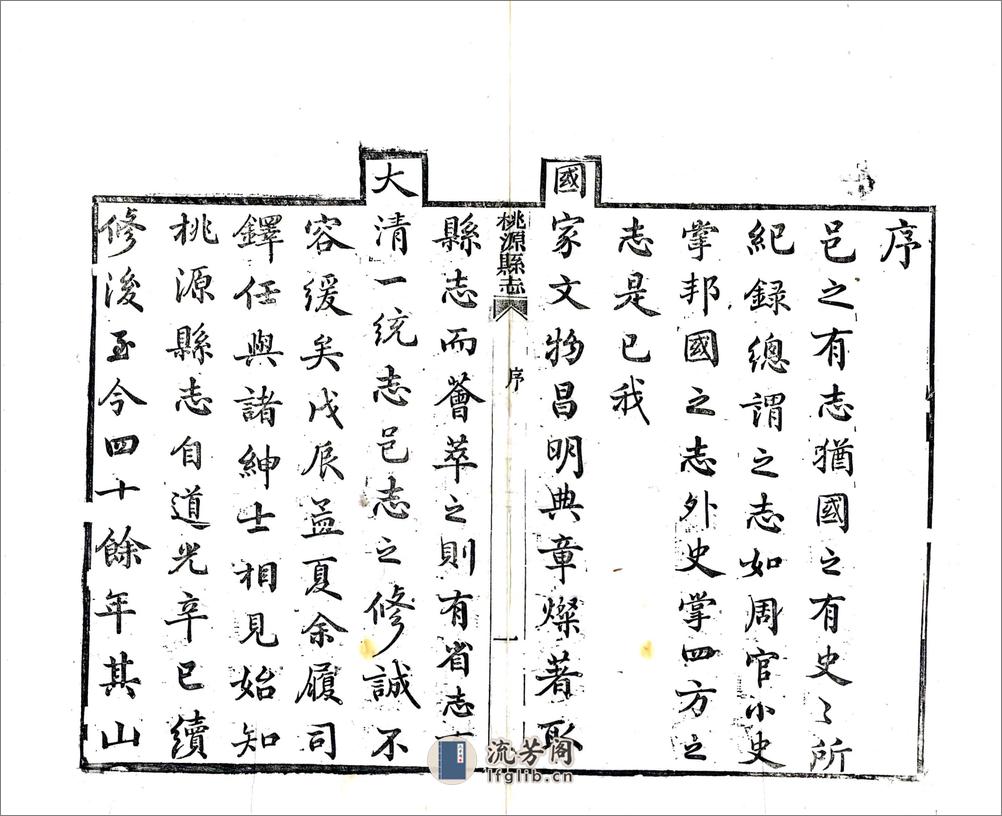 序
邑之有志猶國之有史〻所
紀錄總謂之志如周官小史
掌邦國之志外史掌四方之
志是已我
國家文物昌明典章燦著取
桃源縣志 序 一
縣志而薈萃之則有省志
大清一統志邑志之修誠不
容緩矣戊辰孟夏余履司
鐸任與諸紳士相見始知
桃源縣志自道光辛巳續
修後至今四十餘年其山
流芳阁
lfglib.cn